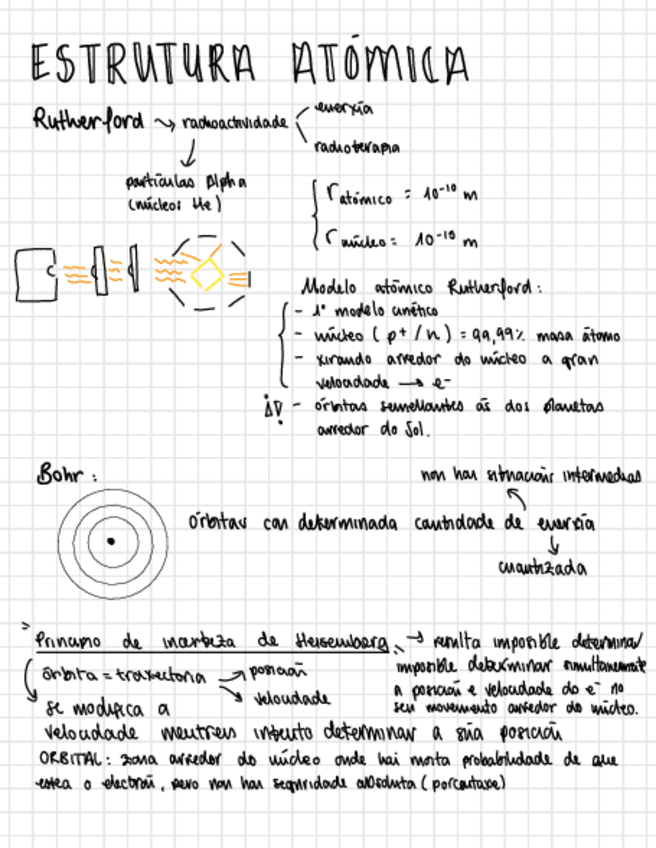 ESTRUTURA ATÓMICA
Rutherford ⤳ radioactividade
enerxía
radioterapia
partículas Alpha
(núcleos He)
r atómico = 10⁻¹⁰ m
r núcleo = 10⁻¹⁵ m
Modelo atómico Rutherford:
- 1º modelo cinético
- núcleo (p⁺/n) = 99,99% masa átomo
- xirando arredor do núcleo a gran
velocidade → e⁻
- órbitas semellantes ás dos planetas
arredor do Sol.
Bohr:
non hai situacións intermedias
órbitas con determinada cantidade de enerxía
cuantizada
Principio de incerteza de Heisemberg → resulta imposible determinar
imposible determinar simultaneamente
a posición e velocidade do e⁻ no
seu movemento arredor do núcleo.
órbita = traxectoria
posición
velocidade
se modifica a
velocidade mentres intento determinar a súa posición
ORBITAL: zona arredor do núcleo onde hai moita probabilidade de que
estea o electrón, pero non hai seguridade absoluta (porcentaxe)